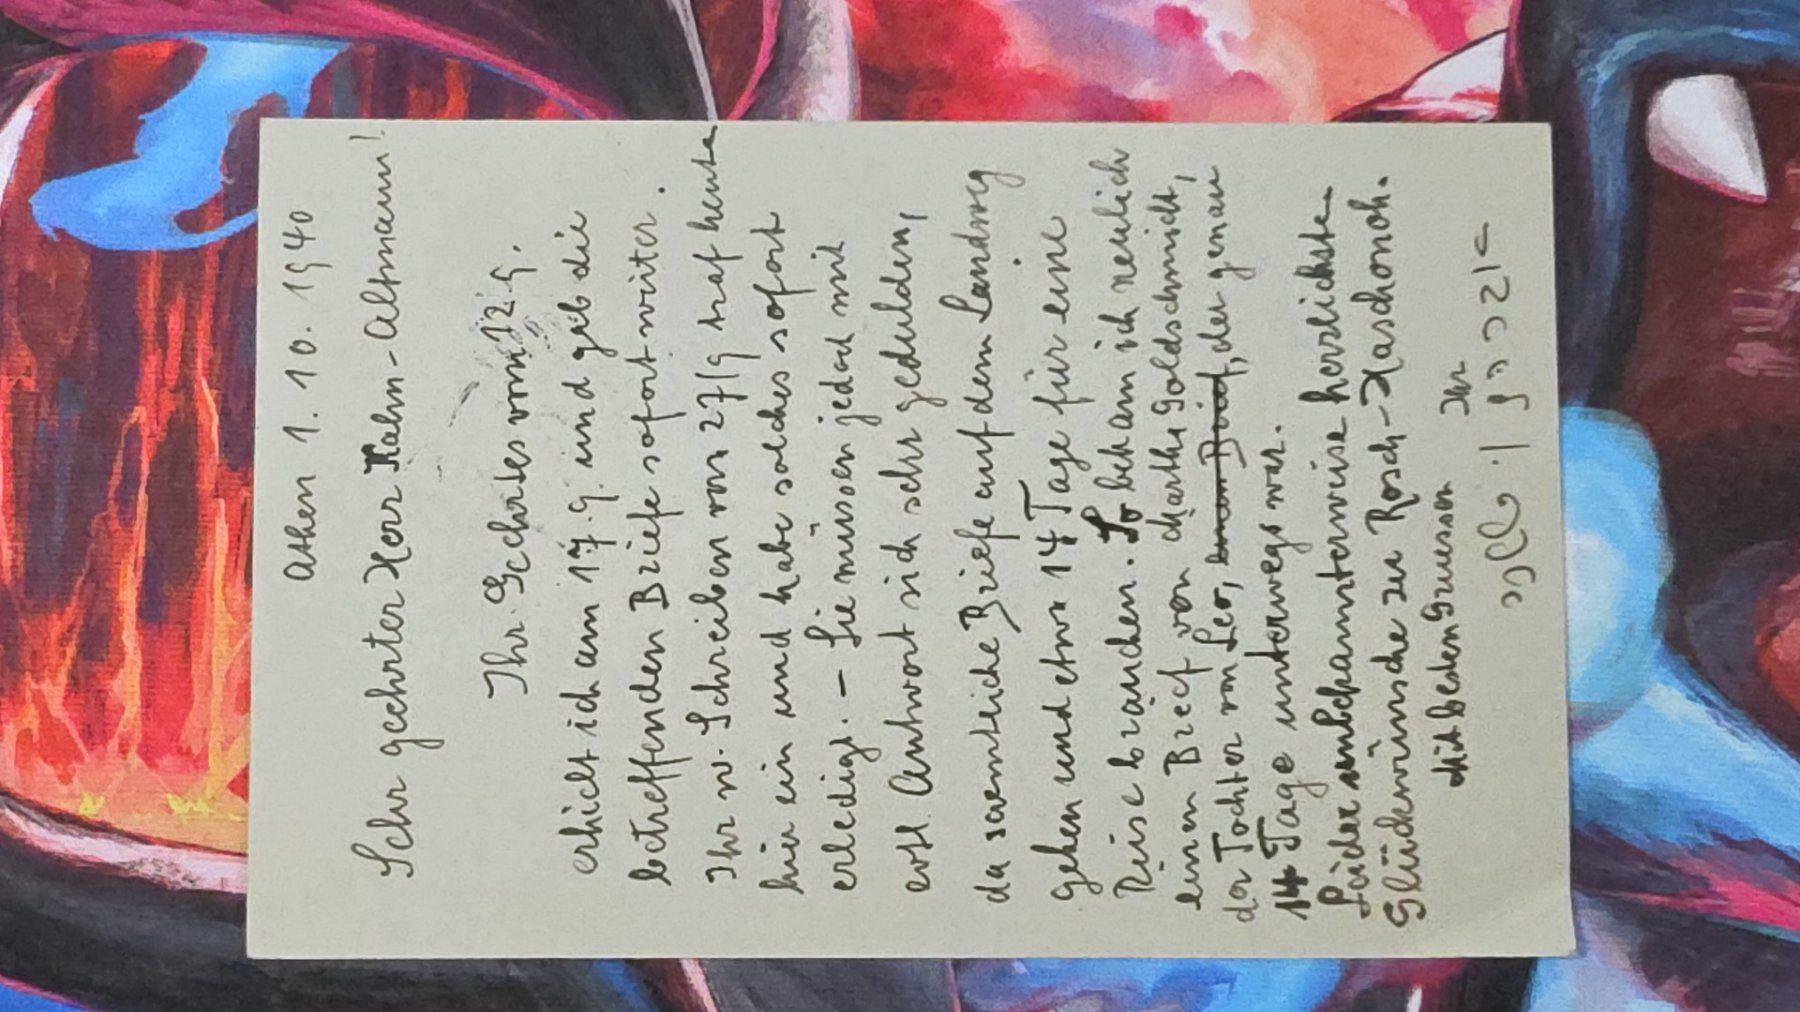 Athen 1. 10. 1940
Sehr geehrter Herr Kahn-Altmann!
Ihr Geehrtes vom 12.9.
erhielt ich am 17.9. und geb die
betreffenden Briefe sofort weiter.
Ihr w. Schreiben von 27/9 traf heute
hier ein und habe solches sofort
erledigt. – Sie müssen jedoch mit
evtl. Antwort sich sehr gedulden,
da saemtliche Briefe auf dem Landweg
gehen und etwa 14 Tage für eine
Reise brauchen. So bekam ich neulich
einen Brief von Marthe Goldschmidt,
der Tochter von Leo, einen Brief, der genau
14 Tage unterwegs war.
Leider unbekannterweise herzlichste
Glückwünsche zu Rosch-Haschonoh.
Mit besten Gruessen Ihr